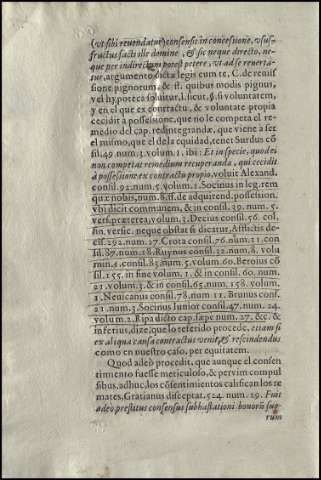 (vt sibi reuendatur) consensit in concessione, vsus-
fructus facti ille domine, & sic neque directo, ne-
que per indirectum potest petere, vt ad se reuerta-
tur, argumento dicta legis cum te, C. de remis-
sione pignorum, & ff. quibus modis pignus,
vel hypoteca soluitur, l. sicut, §. si voluntatem,
y en el que ex contractu, & voluntate propia
cecidit a possesione, que no le competa el re-
medio del cap. redintegranda, que viene a ser
el mismo, que el de la equidad, tenet Surdus con
sil. 49. num. 3. volum. 1. ibi: Et in specie, quod ei
non competat remedium recuperanda, qui cecidit
à possessione ex contractu proprio, voluit Alexand.
consil. 92. num. 5. volum. 1. Socinus in leg. rem
quæ nobis, num. 8. ff. de adquirend. possession.
vbi dicit communem, & in consil. 39. num. 5.
vers. præterea, volum. 3. Decius consil. 56. col.
fin. versic. neque obstat si dicatur, Afflictis de-
cis. 292. num. 27. Crota consil. 76. num. 21. con
sil. 87. num. 28. Ruynus consil. 32. num. 8. volu
min. 1. consil. 83. num. 5. volum. 60. Beroius co
sil. 155. in fine volum. 1. & in consil. 60. num.
21. volum. 3. & in consil. 65. num. 158. volum.
1. Neuicanus consil. 78. num. 11. Brunus conf.
21. num. 3. Socinus Iunior consil. 47. num. 24.
volum. 2. Ripa dicto cap. sæpe num. 27. &c. &
inferius, dize, que lo referido procede, etiam si
ex aliqua causa contractus venit, & rescindendus
como en nuestro caso, per equitatem.
Quod adeò procedit, que aunque el consen
timiento fuesse meticuloso, & per vim compul
sibus, adhuc los cõsentimientos califican los re
mates, Gratianus disceptat. 524. num. 29. Fuit
adeo prestitus consensus subhastationi bonorũ sup
rum